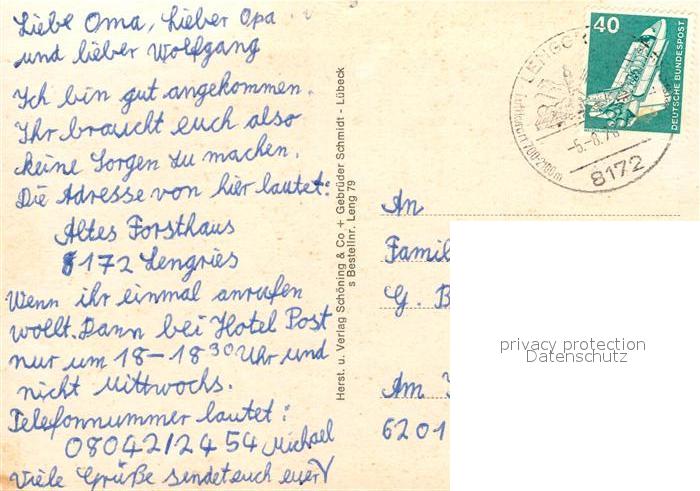 Liebe Oma, lieber Opa
und lieber Wolfgang
Ich bin gut angekommen.
Ihr braucht euch also
keine Sorgen zu machen.
Die Adresse von hier lautet:
Altes Forsthaus
8172 Lengries
Wenn ihr einmal anrufen
wollt. Dann bei Hotel Post
nur um 18-18 30 Uhr und
nicht Mittwochs.
Telefonnummer lautet:
08042/2454 Michael
Viele Grüße sendet euch euer
Herst. u. Verlag Schöning & Co + Gebrüder Schmidt - Lübeck
s Bestellnr. Leng 79
40
DEUTSCHE BUNDESPOST
LENGG
Luftkurort 700-2100m
8172
An
Famil
G. B
Am
6201
privacy protection
Datenschutz